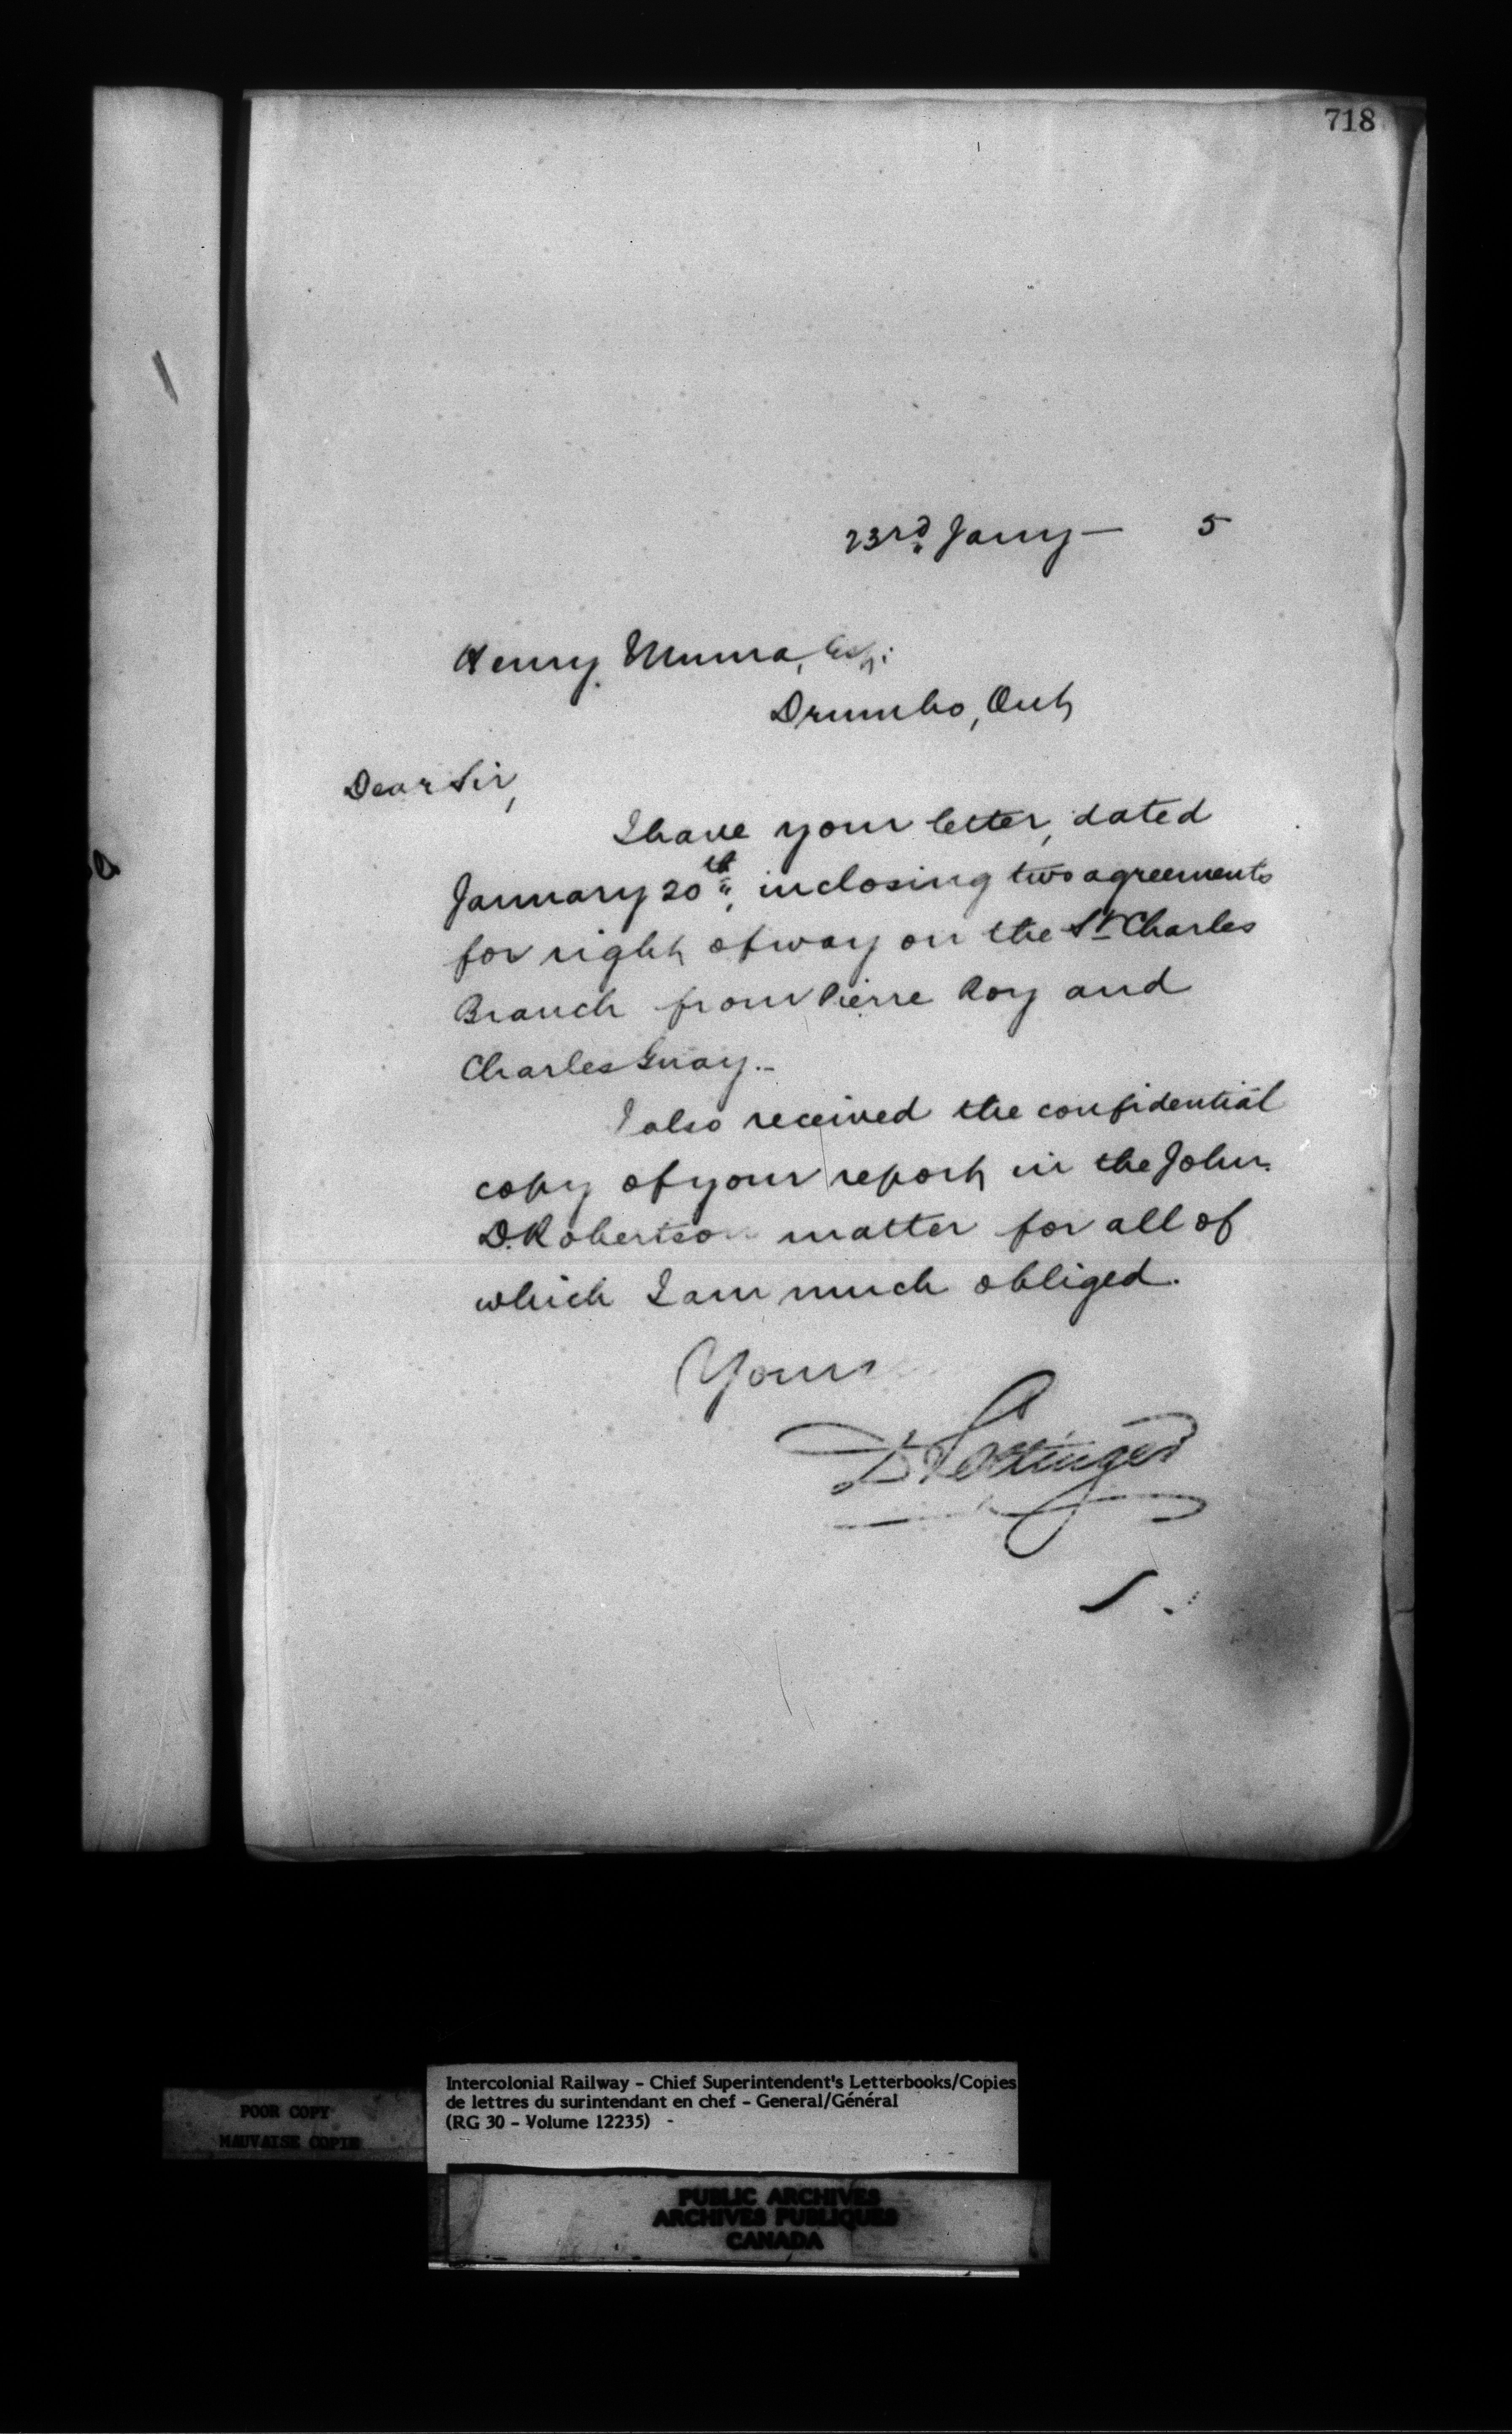 718
23rd Jany — 5
Henry Mumma, Esq:
Drumbo, Ont
Dear Sir,
I have your letter, dated
January 20th, inclosing two agreements
for right of way on the St Charles
Branch from Pierre Roy and
Charles Guay.-
I also received the confidential
copy of your report in the John
D. Robertson matter for all of
which I am much obliged.
Yours
D Pottinger
Intercolonial Railway - Chief Superintendent's Letterbooks/Copies
de lettres du surintendant en chef - General/Général
(RG 30 - Volume 12235) -
POOR COPY
MAUVAISE COPIE
PUBLIC ARCHIVES
ARCHIVES PUBLIQUES
CANADA